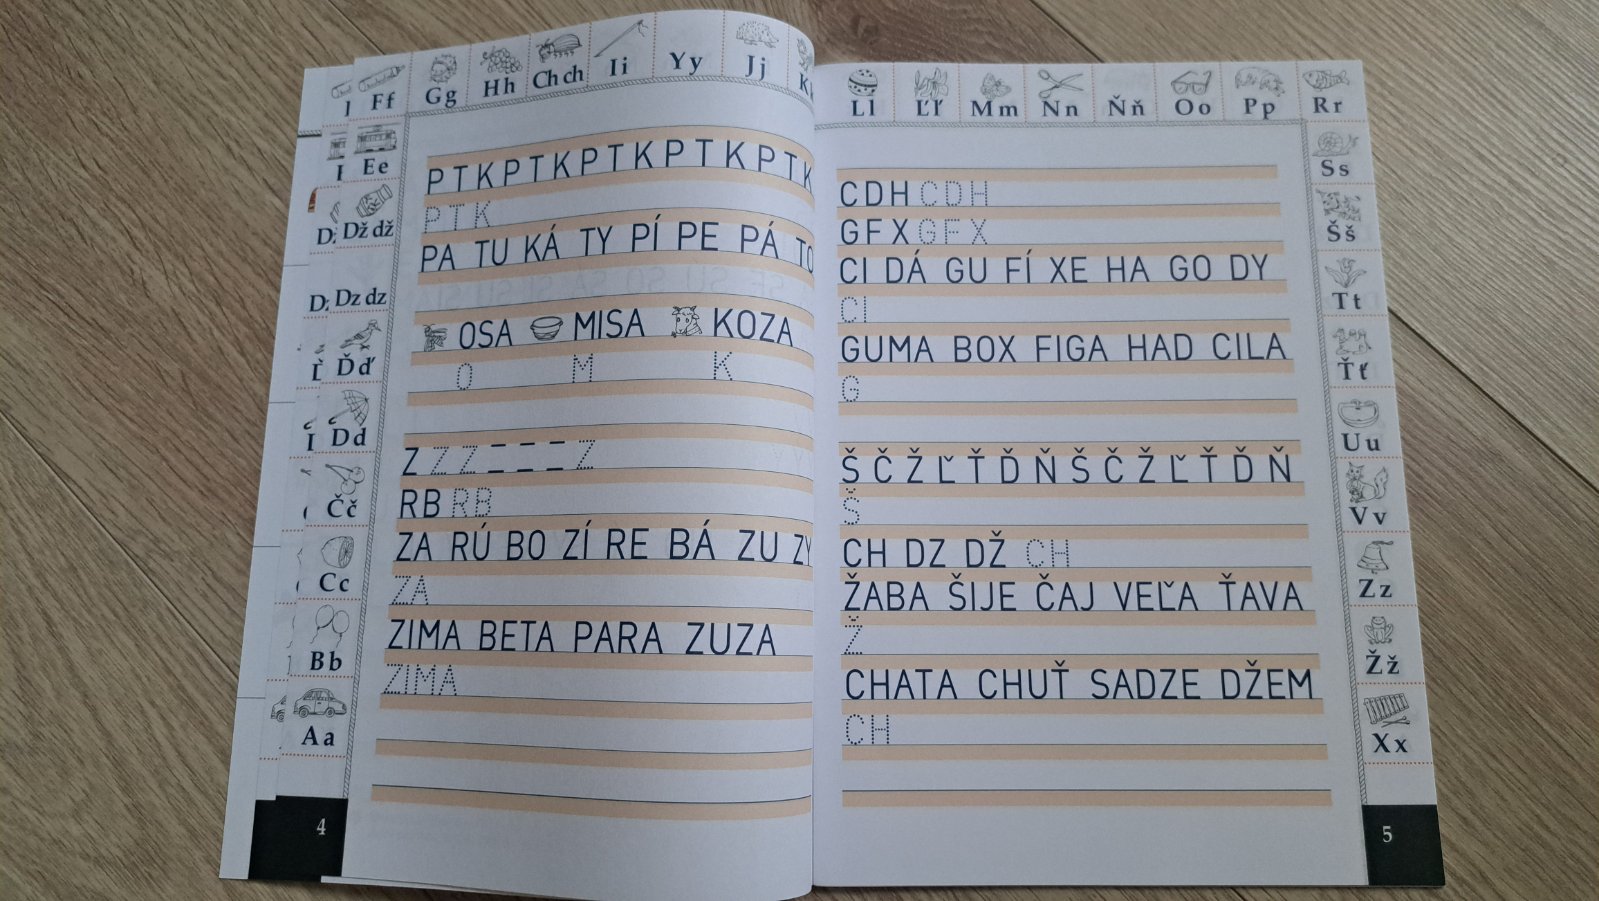 Ff Gg Hh Ch ch Ii Yy Jj
Ee
Dž dž
Dz dz
Ďď
Dd
Čč
Cc
Bb
Aa
P T K P T K P T K P T K P T K
P T K
PA TU KÁ TY PÍ PE PÁ TO
OSA MISA KOZA
O M K
Z Z Z Z
RB RB
ZA RÚ BO ZÍ RE BÁ ZU ZY
ZA
ZIMA BETA PARA ZUZA
ZIMA
4
Ll Ľľ Mm Nn Ňň Oo Pp Rr
Ss
Šš
Tt
Ťť
Uu
Vv
Zz
Žž
Xx
CDH CDH
GFX GFX
CI DÁ GU FÍ XE HA GO DY
CI
GUMA BOX FIGA HAD CILA
G
Š Č Ž Ľ Ť Ď Ň Š Č Ž Ľ Ť Ď Ň
Š
CH DZ DŽ CH
ŽABA ŠIJE ČAJ VEĽA ŤAVA
Ž
CHATA CHUŤ SADZE DŽEM
CH
5